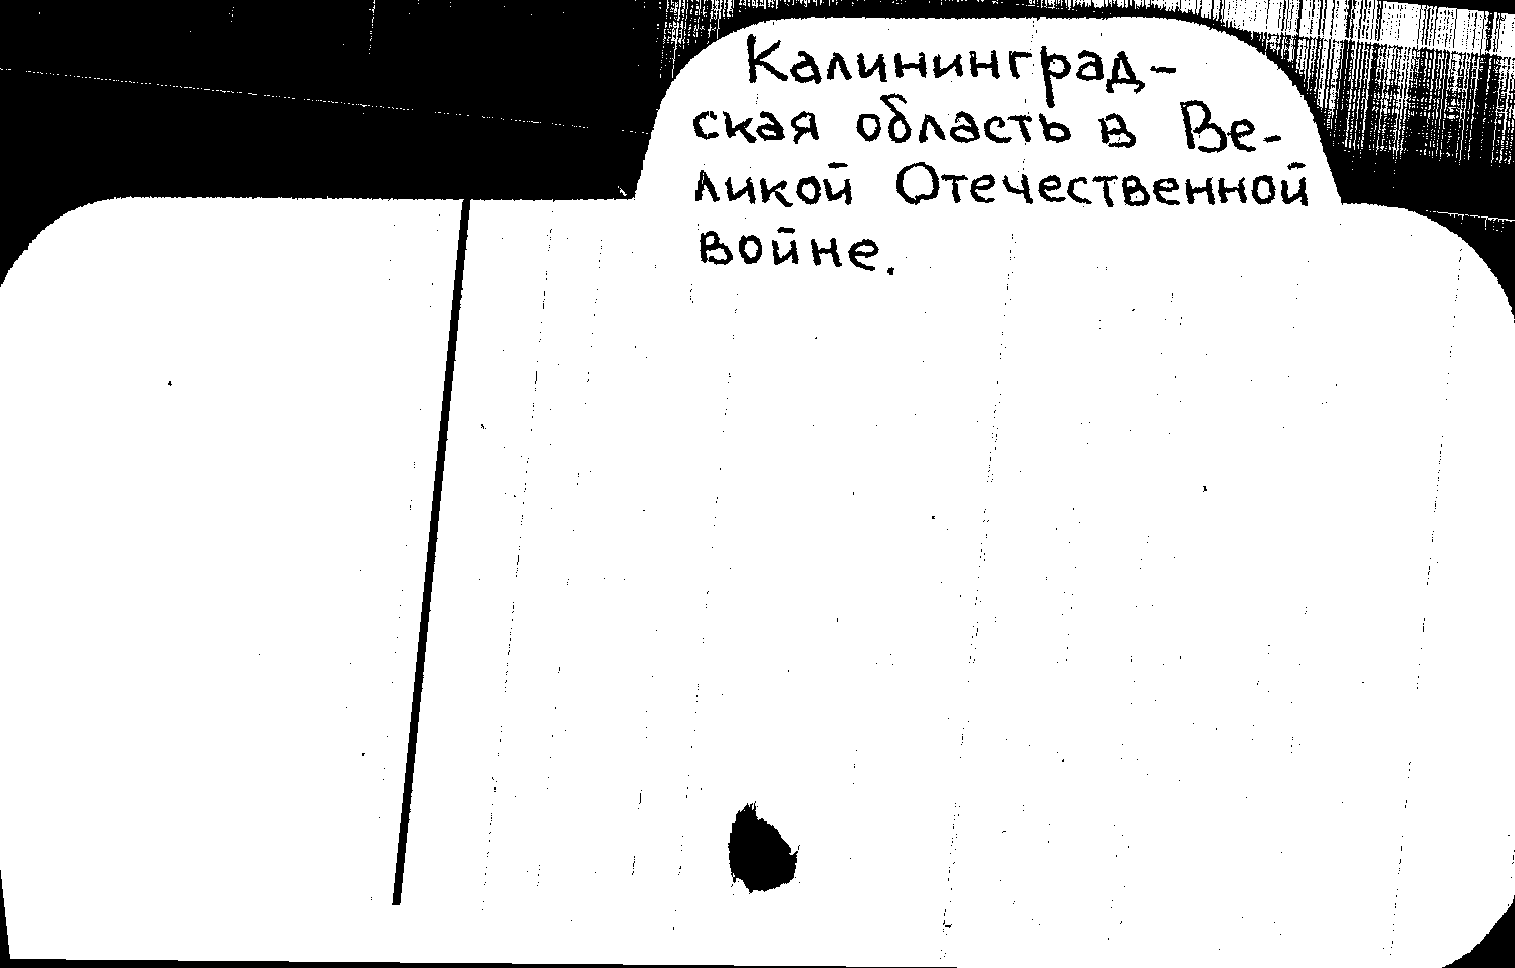 Калининград-
ская область в Ве-
ликой Отечественной
войне.